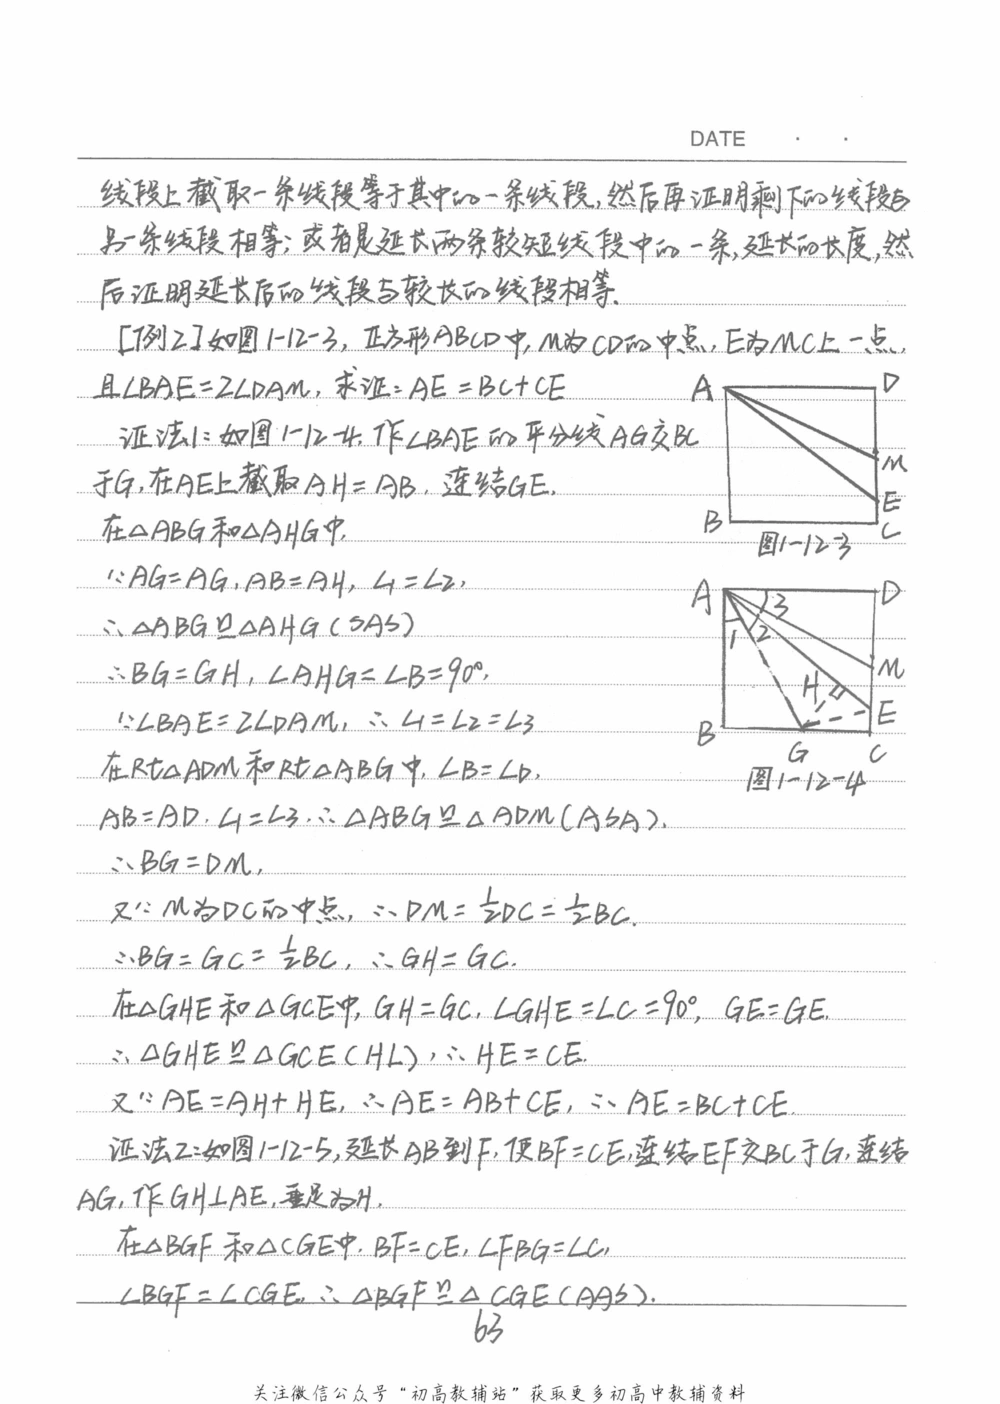 DATE · ·
线段上截取一条线段等于其中的一条线段,然后再证明剩下的线段与
另一条线段相等;或者是延长两条较短线段中的一条,延长的长度,然
后证明延长后的线段与较长的线段相等.
[例2]如图1-12-3, 正方形ABCD中, M为CD的中点, E为MC上一点,
且∠BAE=2∠DAM, 求证:AE=BC+CE
证法1:如图1-12-4.作∠BAE的平分线AG交BC
于G,在AE上截取AH=AB, 连结GE.
在△ABG和△AHG中,
∵AG=AG,AB=AH, ∠1=∠2,
∴△ABG≌△AHG(SAS)
∴BG=GH, ∠AHG=∠B=90°,
∵∠BAE=2∠DAM, ∴∠1=∠2=∠3
在Rt△ADM和Rt△ABG中, ∠B=∠D,
AB=AD,∠1=∠3.∴△ABG≌△ADM(ASA),
∴BG=DM,
又∵M为DC的中点, ∴DM=½DC=½BC,
∴BG=GC=½BC, ∴GH=GC.
在△GHE和△GCE中, GH=GC, ∠GHE=∠C=90°, GE=GE,
∴△GHE≌△GCE(HL),∴HE=CE.
又∵AE=AH+HE, ∴AE=AB+CE, ∴AE=BC+CE.
证法2:如图1-12-5,延长AB到F,使BF=CE,连结EF交BC于G,连结
AG,作GH⊥AE,垂足为H.
在△BGF和△CGE中, BF=CE, ∠FBG=∠C,
∠BGF=∠CGE, ∴△BGF≌△CGE(AAS).
A
D
M
E
B
C
图1-12-3
A
D
3
1
2
M
H
E
B
G
C
图1-12-4
63
关注微信公众号“初高教辅站”获取更多初高中教辅资料